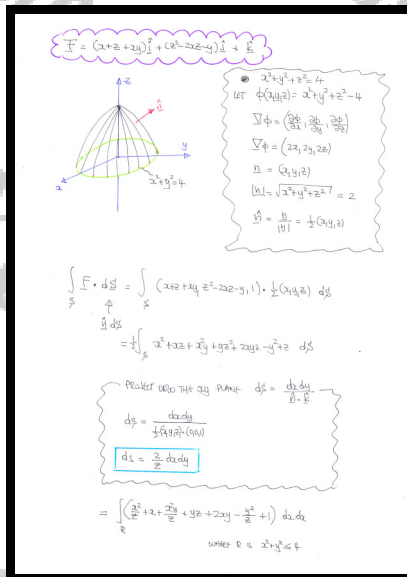 F = (x+z+xy)î + (z²-2xz-y)ĵ + k̂
x²+y²+z²=4
LET φ(x,y,z) = x²+y²+z²-4
∇φ = (∂φ/∂x, ∂φ/∂y, ∂φ/∂z)
∇φ = (2x, 2y, 2z)
n = (x,y,z)
|n| = √(x²+y²+z²) = 2
n̂ = n/|n| = ½(x,y,z)
z
n̂
y
x
x²+y²=4
∫_S F · dS = ∫_S (x+z+xy, z²-2xz-y, 1) · ½(x,y,z) dS
n̂ dS
= ½∫_S x²+xz+x²y+yz²-2xyz-y²+z dS
PROJECT ONTO THE xy PLANE dS = dxdy/(n̂·k̂)
dS = dxdy/(½(x,y,z)·(0,0,1))
dS = 2/z dxdy
= ∫_R (x²/z + x + x²y/z + yz + 2xy - y²/z + 1) dx dx
WHERE R IS x²+y² ≤ 4